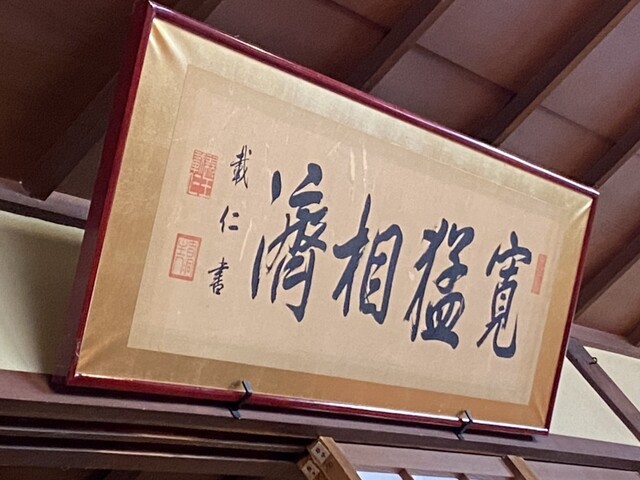 寛猛相濟
載仁書